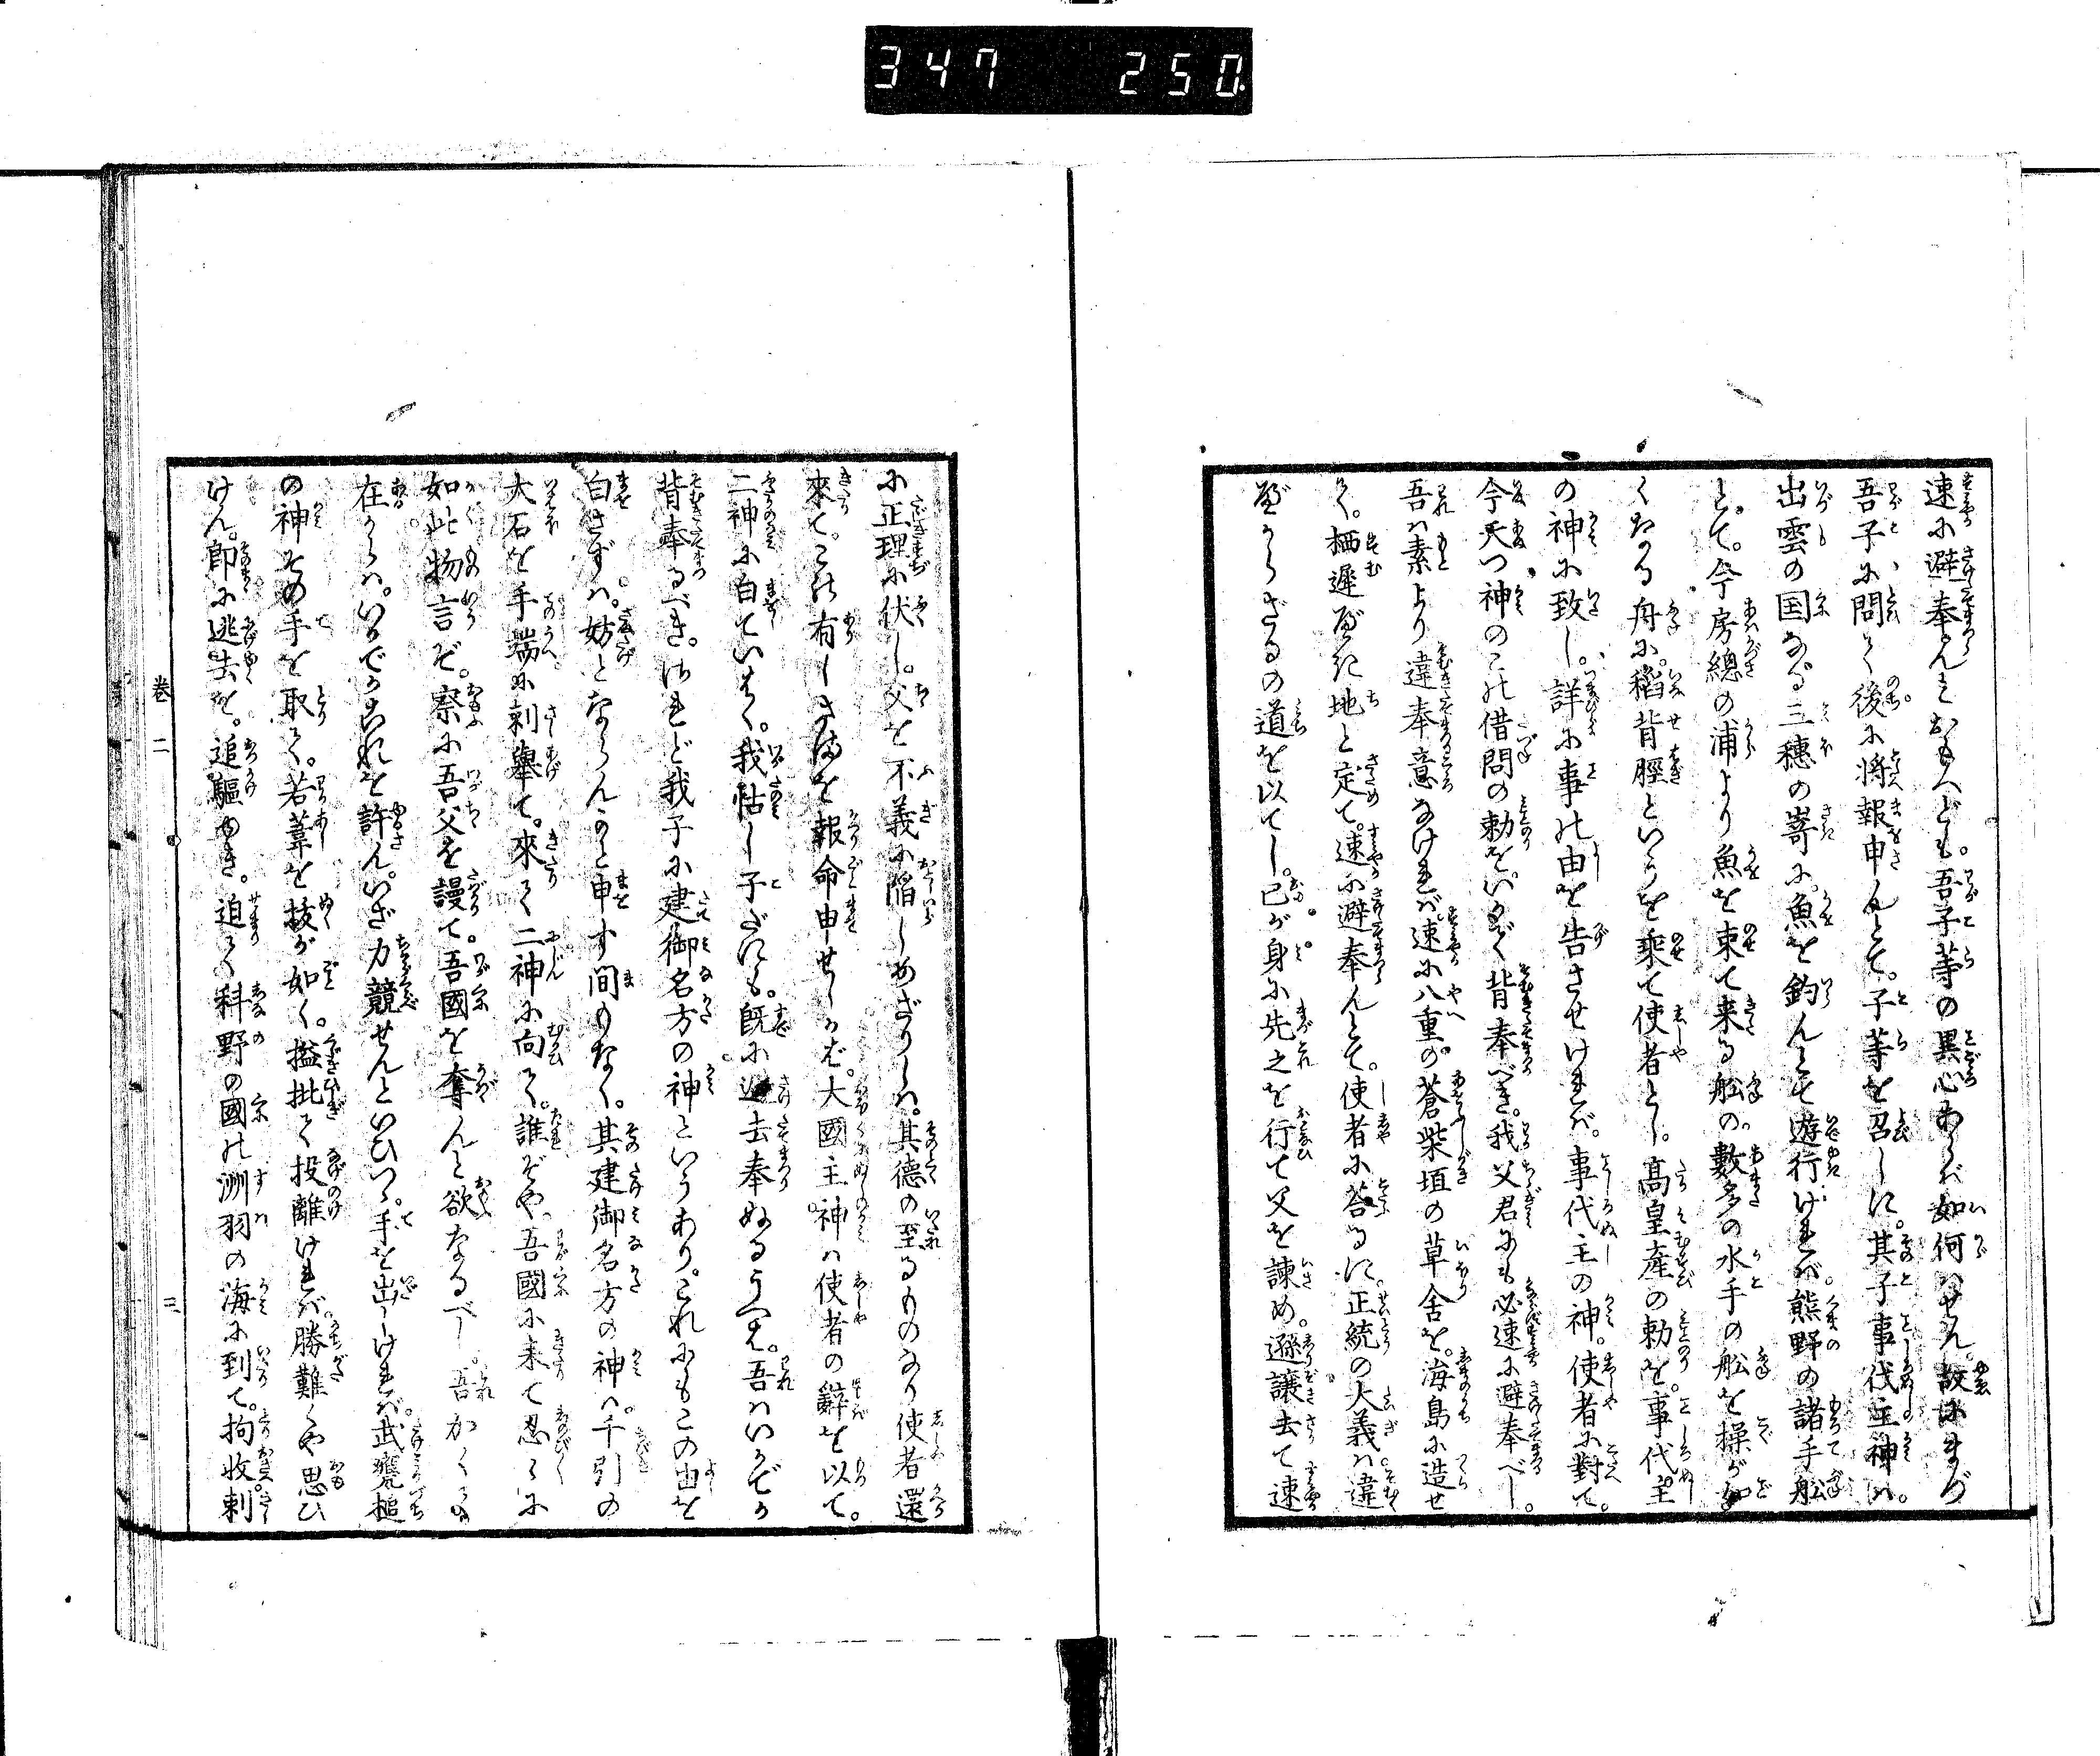 347 250
速に避奉らんとおもへども。吾子等の異心あらば如何はせん。故にまづ
吾子に問て後に将報申んとて。子等を召しに。其子事代主神は。
出雲の国なる三穂の嵜に。魚を釣んとて遊行ければ。熊野の諸手舩
とて。今房總の浦より魚を束て来る舩の。數多の水手の舩を操が如
くなる舟に。稲背脛といふを乗て使者とし。高皇産の勅を。事代主
の神に致し。詳に事の由を告させければ。事代主の神。使者に對て。
今天つ神のこの借問の勅を。いかで背奉べき。我父君にも必速に避奉べし。
吾は素より違奉意なければ。速に八重の蒼柴垣の草舎を。海島に造せ
て。栖遲べき地と定て。速に避奉んとて。使者に荅るに。正統の大義は違
べからざるの道を以てし。已が身に先之を行て父を諫め。遜譲去て速
に正理に伏し。父を不義に陥しめざりしは。其德の至るものなり使者還
來て。この有しさまを報命申せしかば。大國主神は使者の辭を以て。
二神に白ていはく。我怙し子だにも。既に避去奉ぬるうへは。吾はいかでか
背奉るべき。けれど我子に建御名方の神といふあり。これにもこの由を
白さずは。妨とならんかと申す間もなく。其建御名方の神は。千引の
大石を手端に刺舉て。來て二神に向て。誰ぞや。吾國に来て忍々に
如此物言ぞ。察に吾父を謾て。吾國を奪んと欲なるべし。吾かくて
在からは。いかでかこれを許ん。いざ力競せんといひつゝ。手を出しければ。武甕槌
の神その手を取て。若葦を抜が如く。搤批て投離ければ。勝難くや思ひ
けん。即に逃去を。追驅ゆき。迫て科野の國の洲羽の海に到て。拘收刺
卷二
三